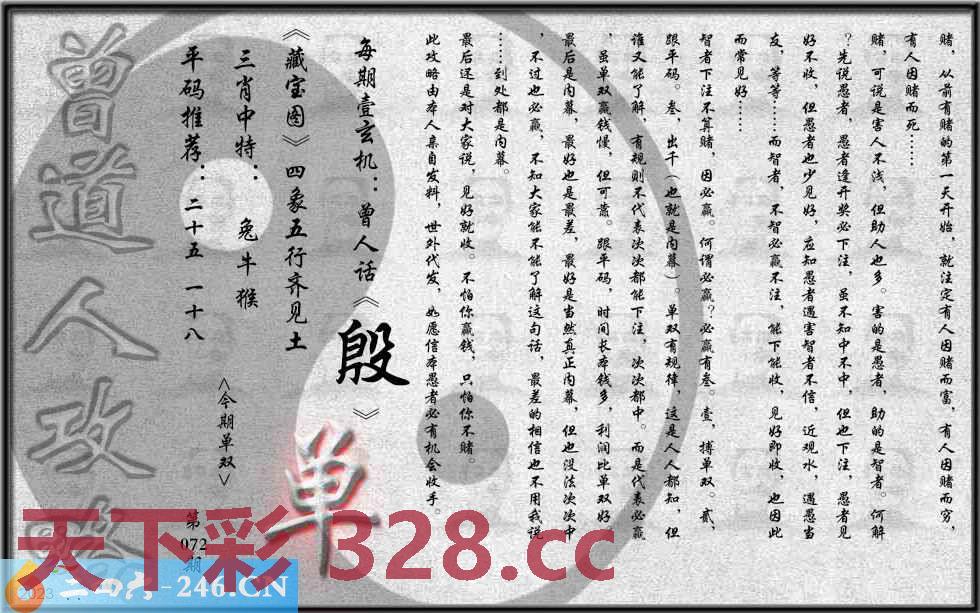 赌，从前有赌的第一天开始，就注定有人因赌而富，有人因赌而穷，
有人因赌而死……
赌，可说是害人不浅，但助人也多。害的是愚者，助的是智者。何解
？先说愚者，愚者逢开奖必下注，虽不知中不中，但也下注，愚者见
好不收，但愚者也少见好，应知愚者遇害智者不信，近观水，遇愚当
友，等等……而智者，不智必赢不注，能下能收，见好即收，也因此
而常见好……
智者下注不算赌，因必赢。何谓必赢？必赢有叁。壹，搏单双。贰，
跟平码。叁，出千（也就是内幕）。单双有规律，这是人人都知，但
谁又能了解，有规则不代表次次都能下注，次次都中。而是代表必赢
，虽单双赢钱慢，但可靠。跟平码，时间长本钱多，利润比单双好。
最后是内幕，最好也是最差，最好是当然真正内幕，但也没法次次中
，不过也必赢，不知大家能不能了解这句话，最差的相信也不用我说
……到处都是内幕。
最后还是对大家说，见好就收。不怕你赢钱，只怕你不赌。
此攻略由本人亲自发料，世外代发，如愿信本愚者必有机会收手。
每期壹玄机：曾人话《殷》
《藏宝图》四象五行齐见土
三肖中特：兔牛猴
平码推荐：二十五 一十八
<今期单双>
单
第072期
曾道人攻
天下彩 328.cc
二四六-246.CN
2023